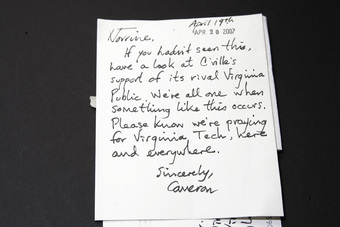 April 19th
APR 20 2007
Norrine,
If you hadn't seen this,
have a look at C'ville's
support of its rival Virginia
Public. We're all one when
something like this occurs.
Please know we're praying
for Virginia Tech, here
and everywhere.
Sincerely,
Cameron